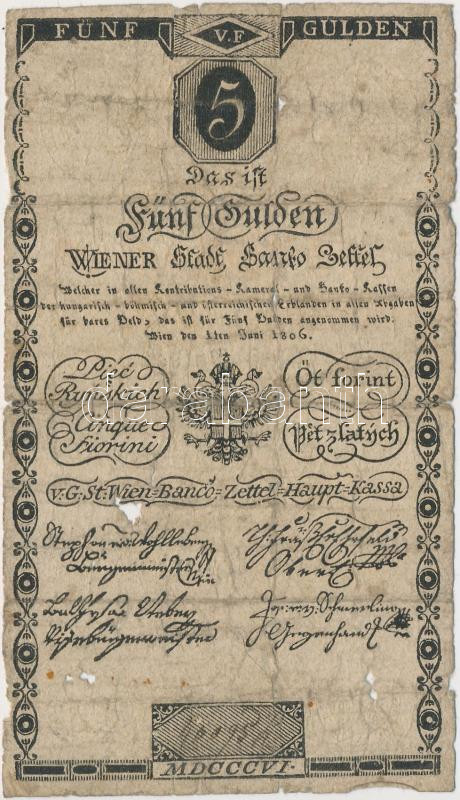 FÜNF V.F GULDEN
5
Das ist
Fünf Gulden
WIENER Stadt Banko Zettel
Welcher in allen Kontributions-Kameral-und Banko-Kassen
der hungarisch-böhmisch-und österreichischen Erblanden in allen Abgaben
für bares Geld, das ist für Fünf Gulden angenommen wird.
Wien den 1ten Juni 1806.
Pięć
Ryńskich
Cinque
Fiorini
Öt forint
Pět zlatých
darabanth
v.G.St.Wien=Banco=Zettel=Haupt=Kassa
Stephan
Bürgermeister
Vizebürgermeister
Gegenhand
MDCCCVI.